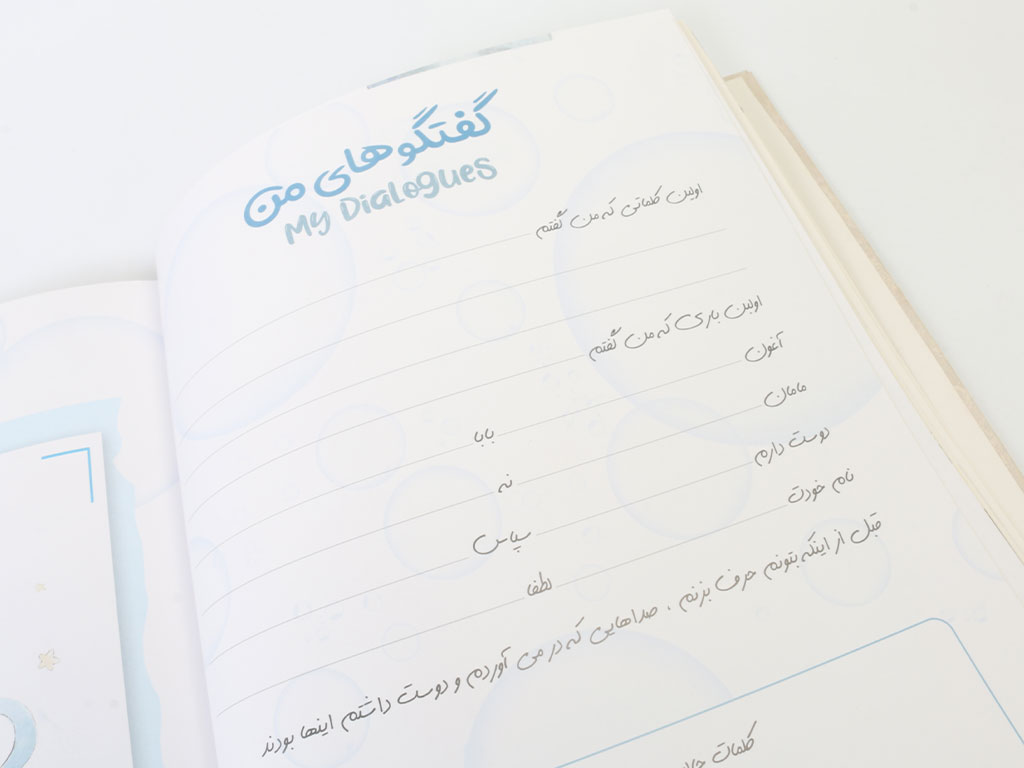 گفتگوهای من
My Dialogues
اولین کلماتی که من گفتم
اولین باری که من گفتم
آغون بابا
مامان نه
دوست دارم سپاس
نام خودت لطفا
قبل از اینکه بتونم حرف بزنم ، صداهایی که در می آوردم و دوست داشتم اینها بودند
کلمات